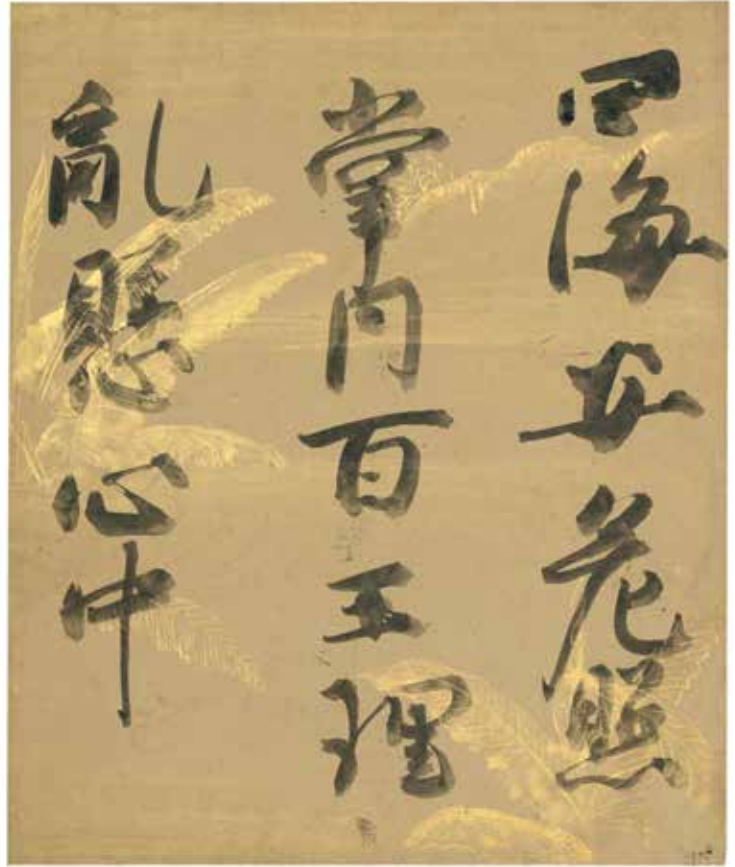 四海安危照
掌內百王理
亂懸心中